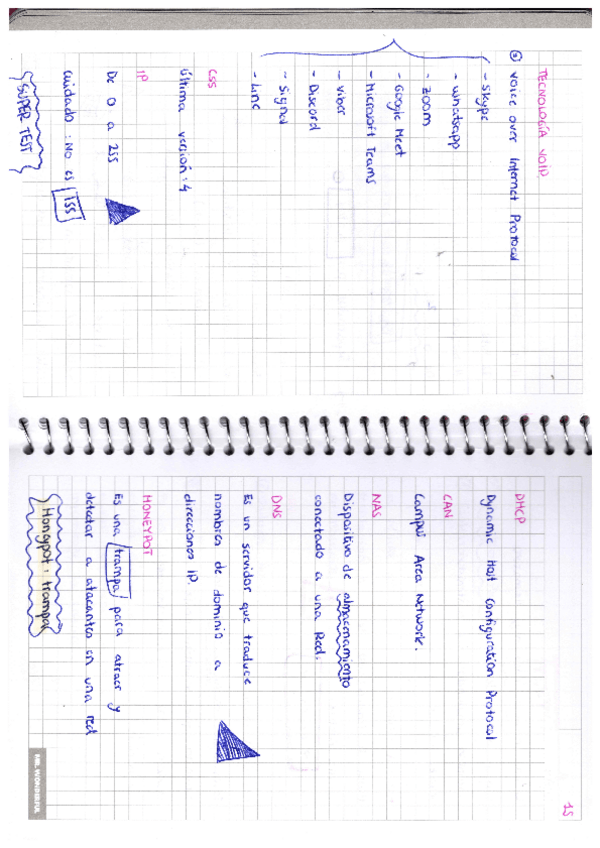 TECNOLOGÍA VOIP
Voice over Internet Protocol
- Skype
- Whatsapp
- Zoom
- Google Meet
- Microsoft Teams
- Viber
- Discord
- Signal
- Line
CSS
Última versión: 4
IP
De 0 a 255
Cuidado: No es 155
SUPER TEST
15
DHCP
Dynamic Host Configuration Protocol
CAN
Campus Area Network.
NAS
Dispositivo de almacenamiento
conectado a una Red.
DNS
Es un servidor que traduce
nombres de dominio a
direcciones IP.
HONEYPOT
Es una trampa para atraer y
detectar a atacantes en una red
Honeypot: trampa
MR. WONDERFUL